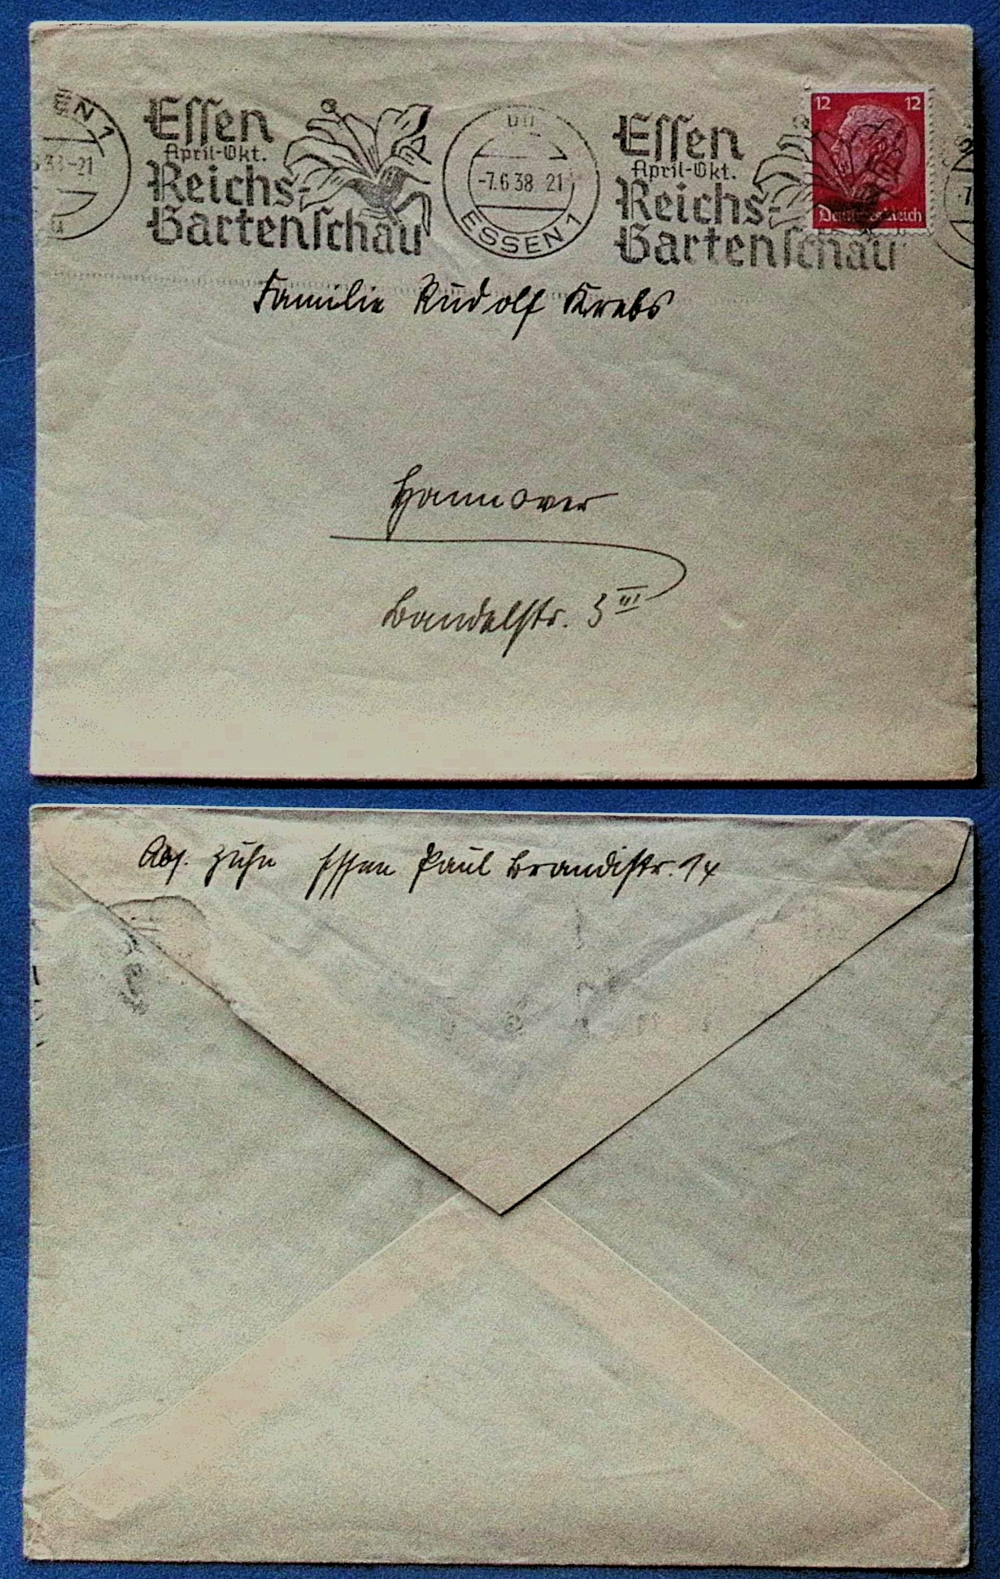 EN 1
38-21
Eſſen
April-Okt.
Reichs-
Gartenſchau
-7.6.38 21
ESSEN 1
Eſſen
April-Okt.
Reichs-
Gartenſchau
12 12
Deutsches Reich
Familie Rudolf Krebs
Hannover
Bandelstr. 3 III
Abs. Essen Paul Brandistr. 14